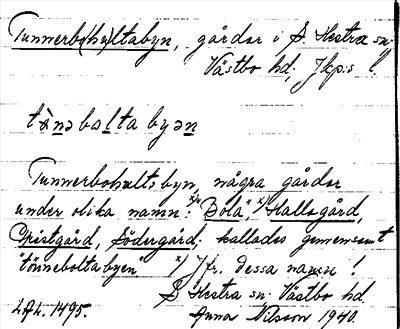 Tunnerbo(hu)ltabyn, gårdar i S. Hestra sn;
Västbo hd; Jkp:s l.
tònəboltabyən
Tunnerbohultsbyn, några gårdar
under olika namn: x)"Böla", x)Hallagård,
Christgård, Södergård. kallades gemensamt
"tönneboltabyen" x) Jfr. dessa namn!
S Hestra sn. Västbo hd
LAL. 1495. Anna Nilsson 1940.